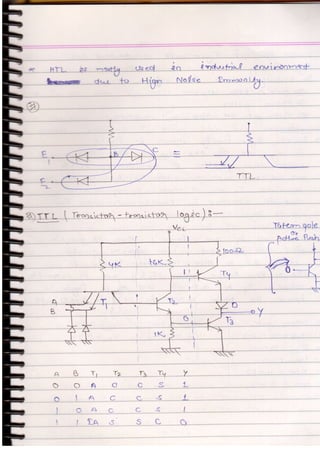 * HTL is mostly used in industrial environment
due to High Noise Immunity.
E1
B
C
E2
≡
TTL
TTL (Transistor-transistor logic):-
Vcc
Totem pole
or
Active Push
4K
1.6K
100Ω
A
B
T1
T2
T4
1
D
Y
0
T3
1K
A B T1 T2 T3 T4 Y
0 0 A C C S 1
0 1 A C C S 1
1 0 A C C S 1
1 1 IA S S C 0